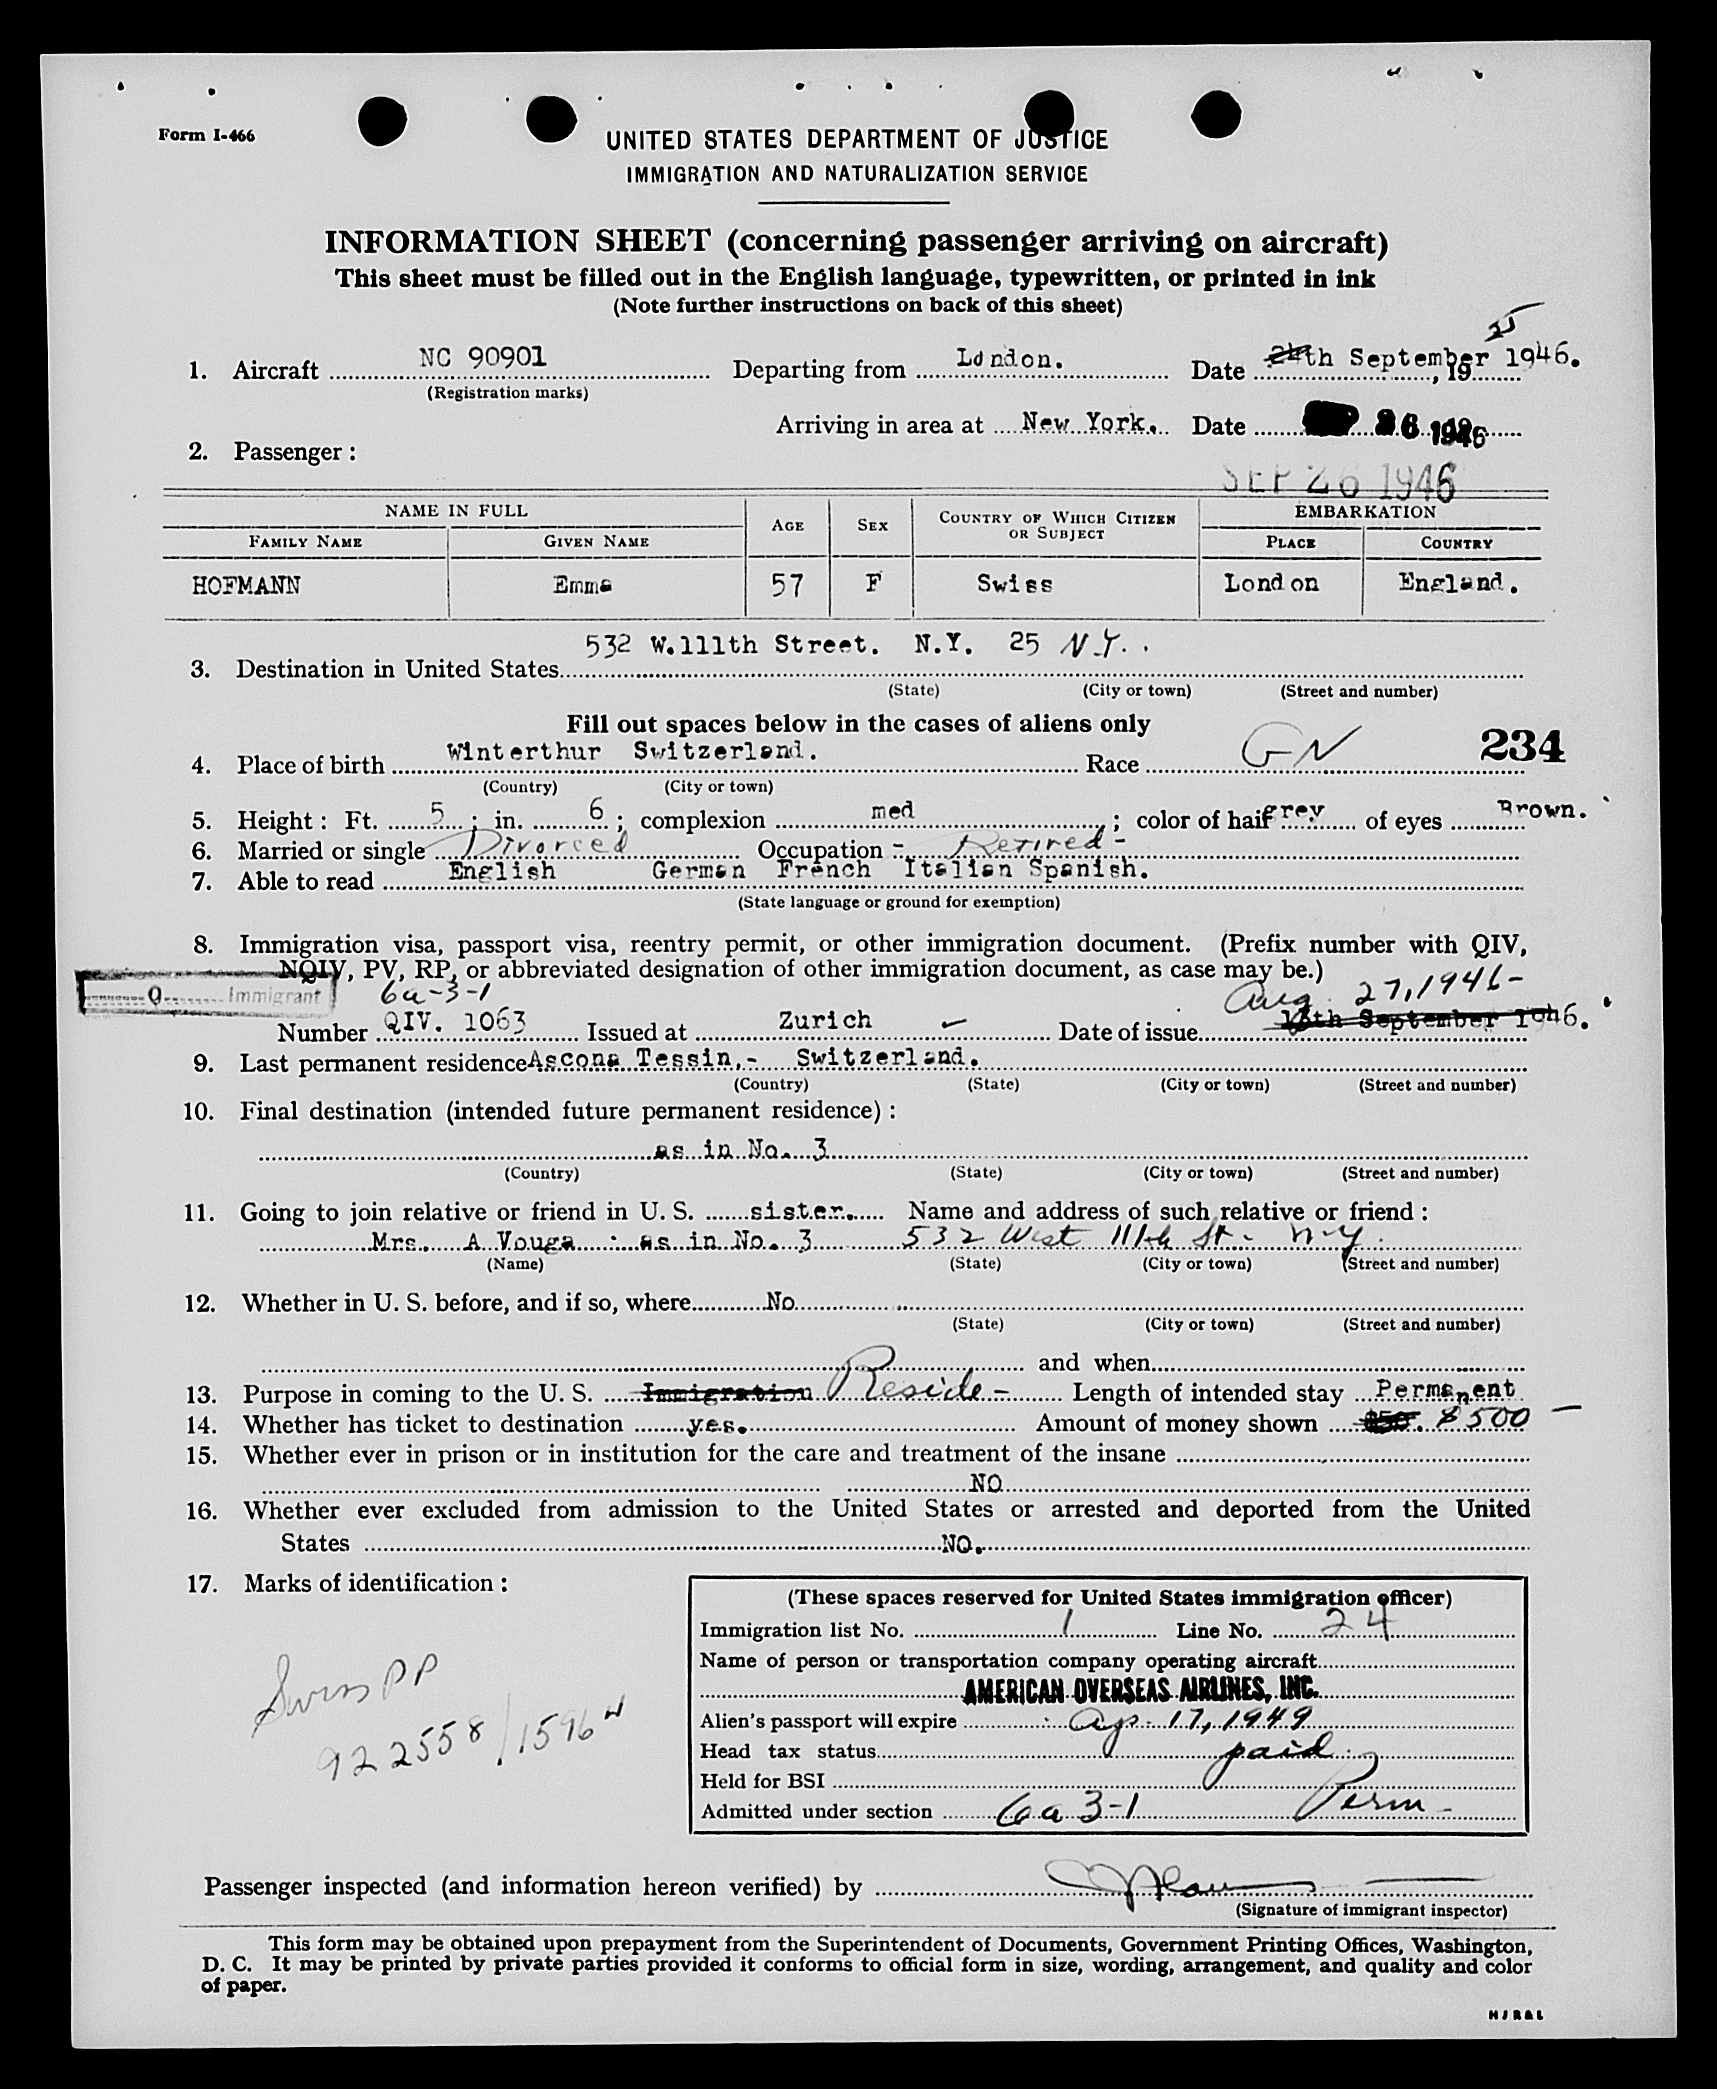 Form I-466
UNITED STATES DEPARTMENT OF JUSTICE
IMMIGRATION AND NATURALIZATION SERVICE
INFORMATION SHEET (concerning passenger arriving on aircraft)
This sheet must be filled out in the English language, typewritten, or printed in ink
(Note further instructions on back of this sheet)
25
1. Aircraft NC 90901 Departing from London. Date 24th September 1946. , 19
(Registration marks)
Arriving in area at New York. Date 26 1946
2. Passenger :
SEP 26 1946
NAME IN FULL AGE SEX COUNTRY OF WHICH CITIZEN OR SUBJECT EMBARKATION
FAMILY NAME GIVEN NAME PLACE COUNTRY
HOFMANN Emma 57 F Swiss London England.
532 W.111th Street. N.Y. 25 N.Y. .
3. Destination in United States
(State) (City or town) (Street and number)
Fill out spaces below in the cases of aliens only
4. Place of birth Winterthur Switzerland. Race GN 234
(Country) (City or town)
5. Height : Ft. 5 ; in. 6 ; complexion med ; color of hair grey of eyes Brown.
6. Married or single Divorced Occupation - Retired -
7. Able to read English German French Italian Spanish.
(State language or ground for exemption)
8. Immigration visa, passport visa, reentry permit, or other immigration document. (Prefix number with QIV,
NQIV, PV, RP, or abbreviated designation of other immigration document, as case may be.)
Q Immigrant 6a-3-1 Aug. 27, 1946-
Number QIV. 1063 Issued at Zurich Date of issue 13th September 1946.
9. Last permanent residence Ascona Tessin,- Switzerland.
(Country) (State) (City or town) (Street and number)
10. Final destination (intended future permanent residence) :
as in No. 3
(Country) (State) (City or town) (Street and number)
11. Going to join relative or friend in U. S. sister. Name and address of such relative or friend :
Mrs. A Vouga : as in No. 3 532 West 111th St. N-Y.
(Name) (State) (City or town) (Street and number)
12. Whether in U. S. before, and if so, where No
(State) (City or town) (Street and number)
and when
13. Purpose in coming to the U. S. Immigration Reside - Length of intended stay Permanent
14. Whether has ticket to destination yes. Amount of money shown $50. $500 -
15. Whether ever in prison or in institution for the care and treatment of the insane
NO
16. Whether ever excluded from admission to the United States or arrested and deported from the United
States NO.
17. Marks of identification :
Swiss PP
922558/1596
(These spaces reserved for United States immigration officer)
Immigration list No. 1 Line No. 24
Name of person or transportation company operating aircraft
AMERICAN OVERSEAS AIRLINES, INC.
Alien's passport will expire Ap. 17, 1949
Head tax status paid
Held for BSI
Admitted under section 6a 3-1 Perm -
Passenger inspected (and information hereon verified) by
(Signature of immigrant inspector)
This form may be obtained upon prepayment from the Superintendent of Documents, Government Printing Offices, Washington,
D. C. It may be printed by private parties provided it conforms to official form in size, wording, arrangement, and quality and color
of paper.